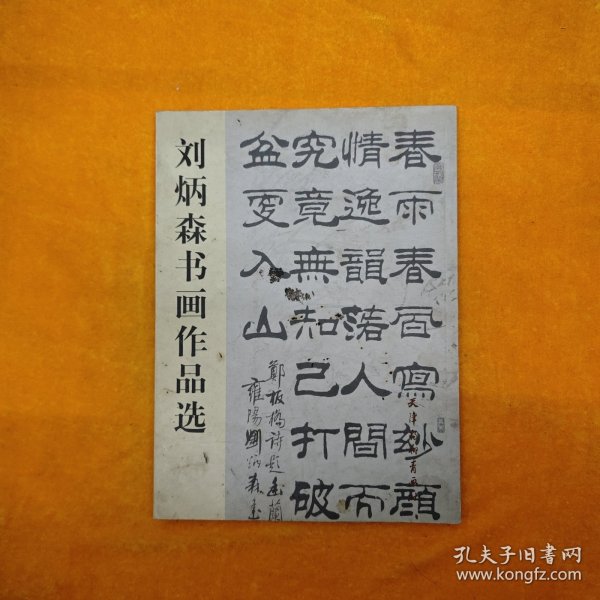 刘炳森书画作品选
春雨春風寫妙顏
情逸韻落人間而
究竟無知己打破
盆更入山
鄭板橋詩題画蘭
雍陽劉炳森
孔夫子旧书网
www.kongfz.com